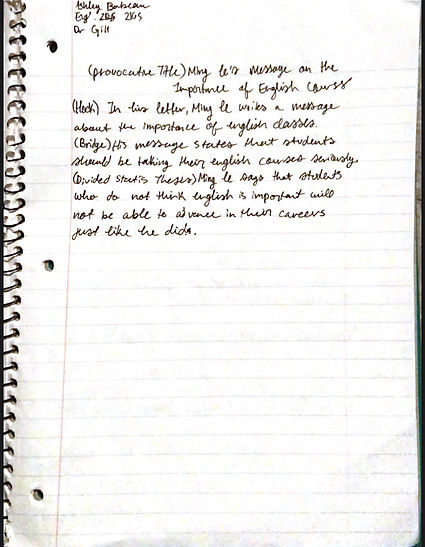 Ashley
Eng. 2105
Dr Gill
(Provocative Title) Ming Le's Message on the
Importance of English Courses
(Hook) In his letter, Ming Le writes a message
about the importance of english classes.
(Bridge) His message states that students
should be taking their english courses seriously.
(Divided Thesis) Ming Le says that students
who do not think english is important will
not be able to advance in their careers
just like he did.